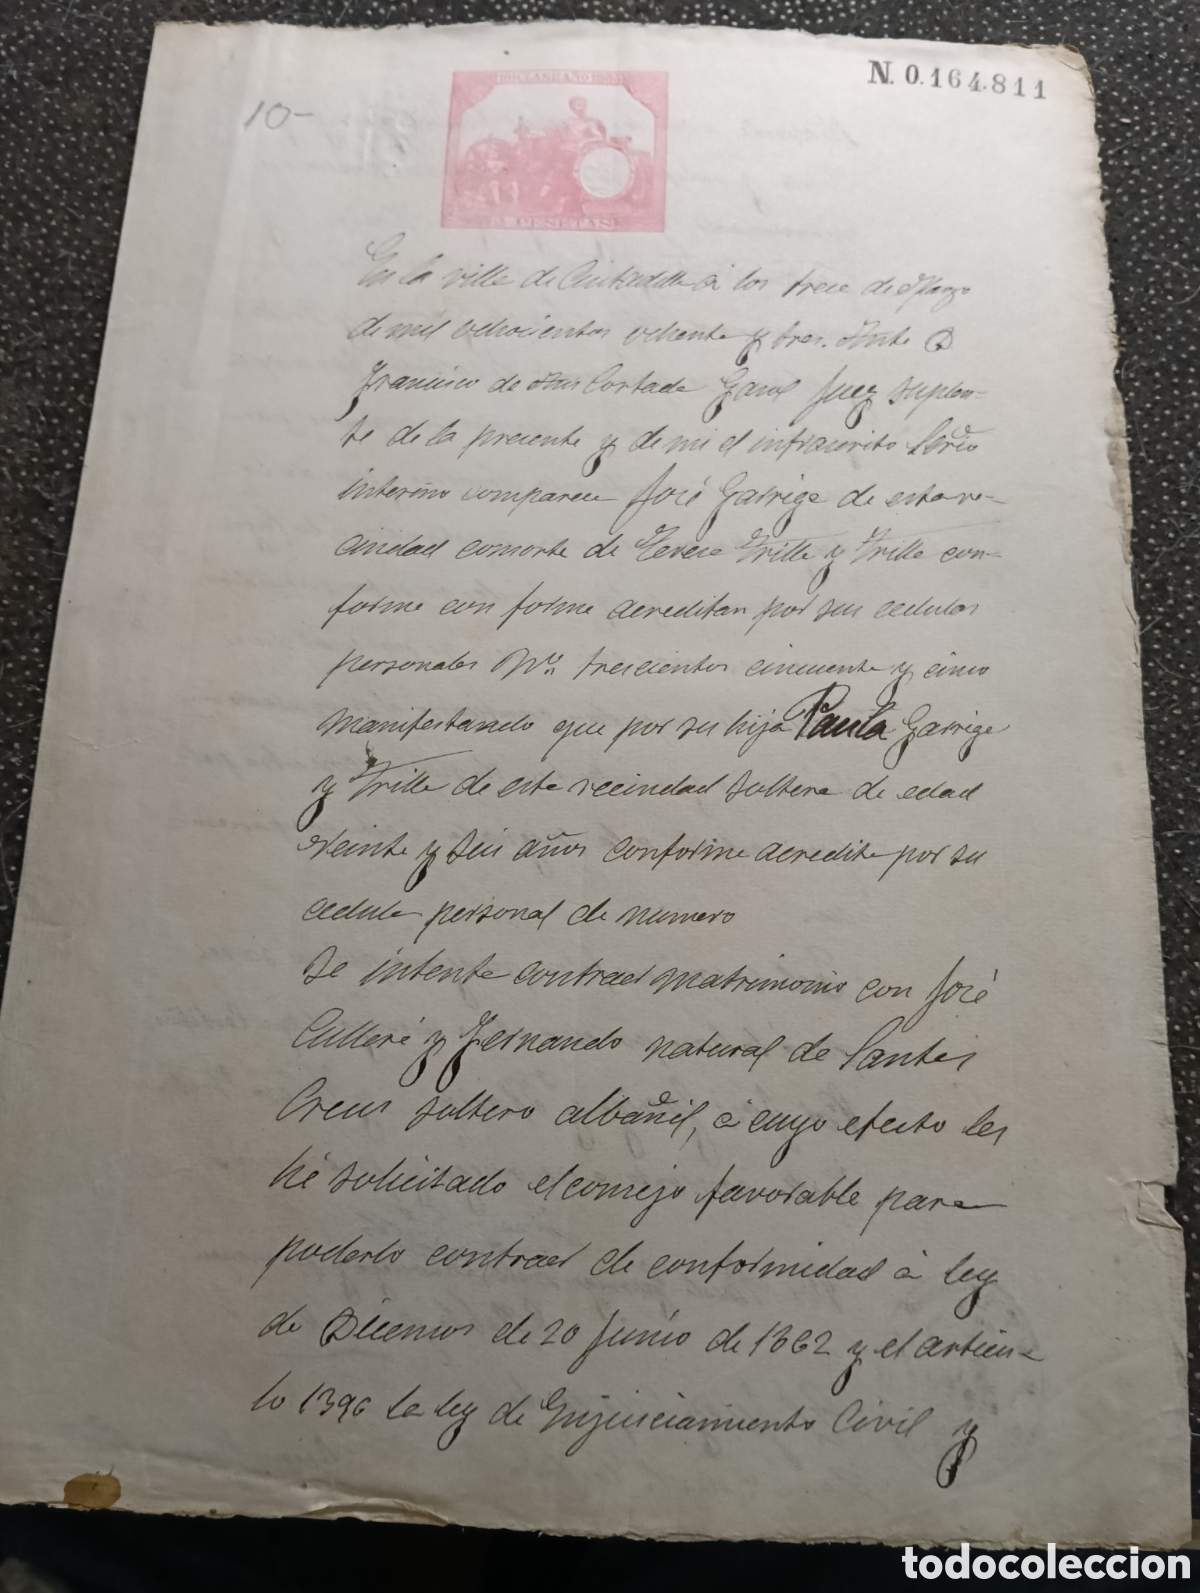 N. 0.164.811
10-
PESETAS
En la villa de Ciutadilla á los trece de Marzo
de mil ochocientos ochenta y tres. Ante D
Francisco de Asis Cortada Juez suplen-
te de la presente y de mi el infrascrito Serio
interino comparece José Garriga de esta ve-
cindad consorte de Teresa Trilla y Trilla con-
forme con forme acreditan por sus cedulas
personales Nº trescientos cincuenta y cinco
Manifestando que por su hija Paula Garriga
y Trilla de esta vecindad soltera de edad
veinte y seis años conforme acredita por su
cedula personal de numero
se intenta contraer matrimonio con José
Culleré y Fernando natural de Santas
Creus soltero albañil, á cuyo efecto les
hé solicitado el consejo favorable para
poderlo contraer de conformidad á ley
de Disensos de 20 Junio de 1862 y el articu-
lo 1396 la ley de Enjuiciamiento Civil y
todocoleccion